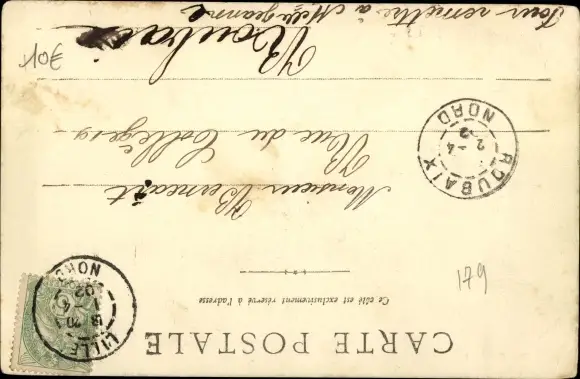 CARTE POSTALE
Ce côté est exclusivement réservé à l'adresse
Monsieur Bernard
Rue du Collège 19
Roubaix
Pour remettre à Melle Jeanne
LILLE
NORD
ROUBAIX
2 - 4
02
NORD
179